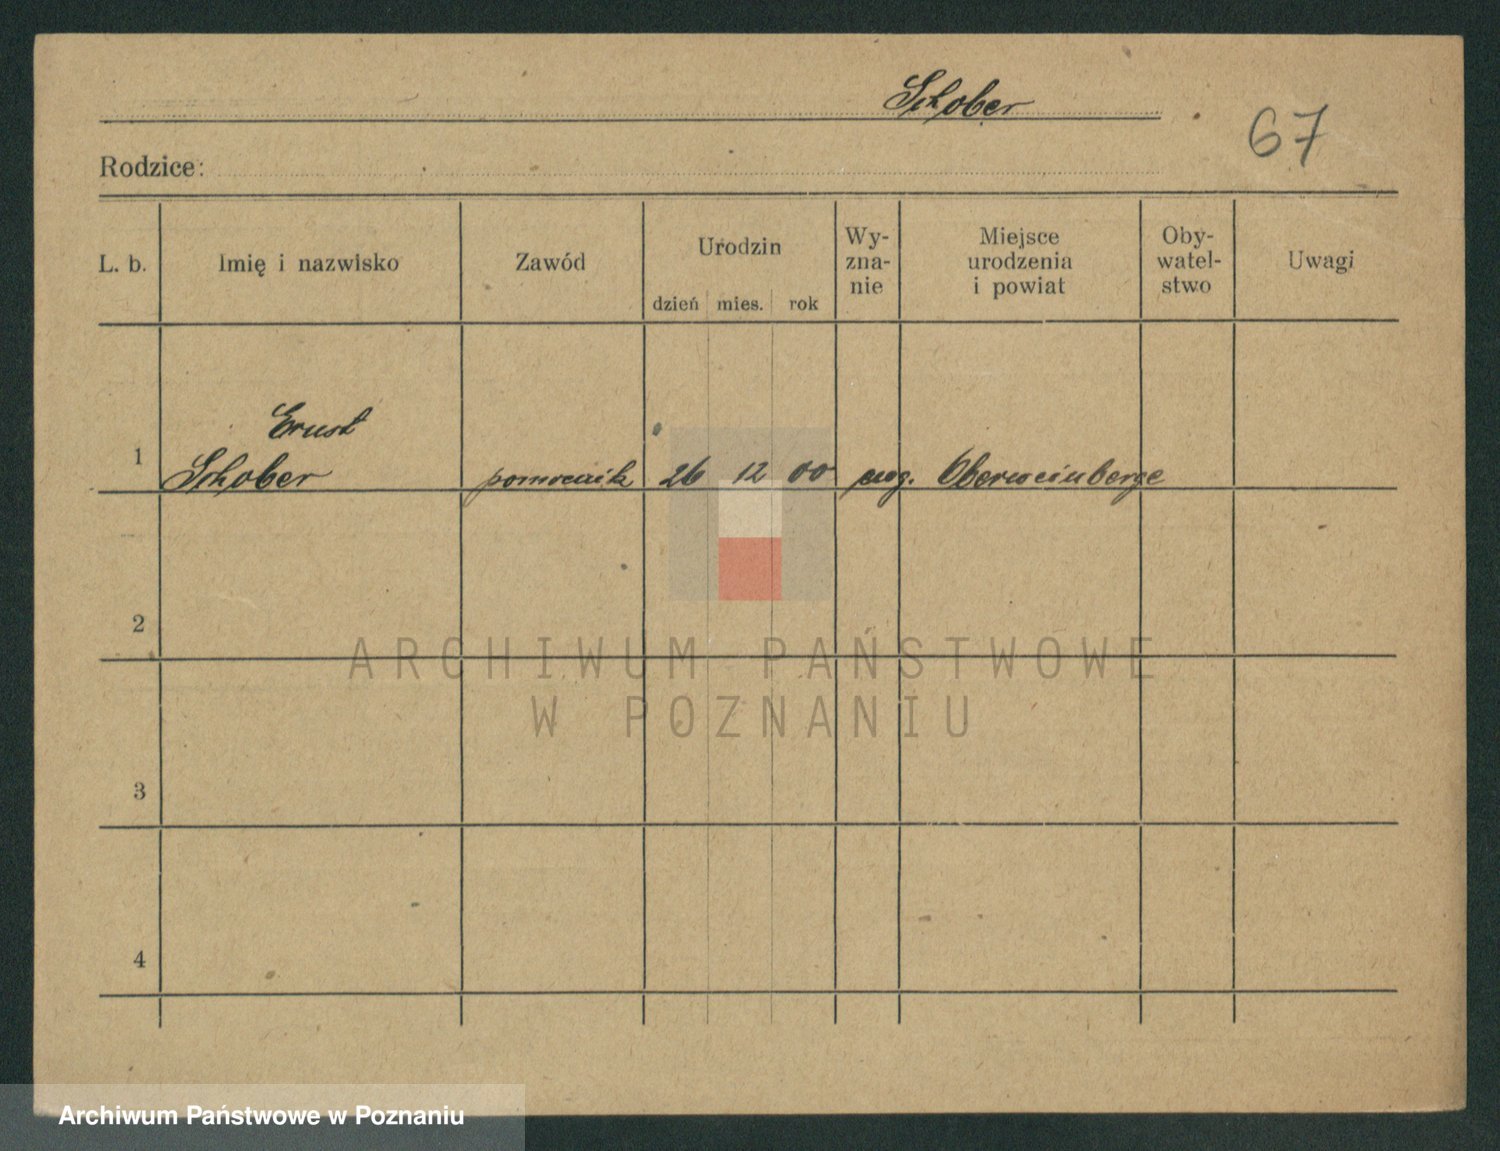 Schober
67
Rodzice:
L. b. Imię i nazwisko Zawód Urodzin Wy-zna-nie Miejsce urodzenia i powiat Oby-watel-stwo Uwagi
dzień mies. rok
Ernst
1 Schober pomocnik 26 12 00 ewg. Oberweinberge
2
ARCHIWUM PAŃSTWOWE
W POZNANIU
3
4
Archiwum Państwowe w Poznaniu